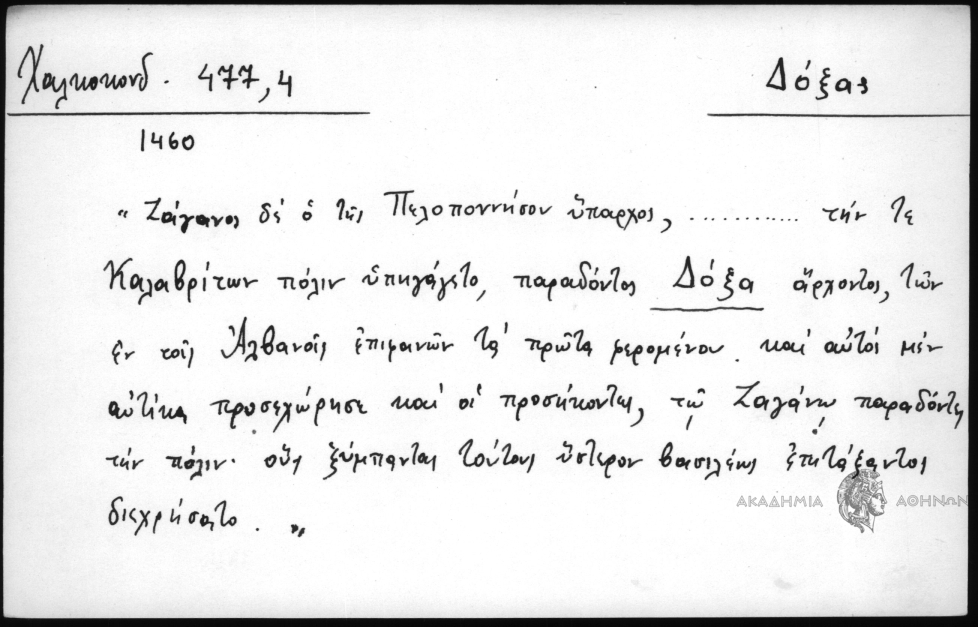 Χαλκοκονδ. 477,4
Δόξας
1460
"Ζάγανος δέ ὁ τῆς Πελοποννήσου ὕπαρχος, ............ τήν τε
Καλαβρίτων πόλιν ὑπηγάγετο, παραδόντος Δόξα ἄρχοντος, τῶν
ἐν τοῖς Ἀλβανοῖς ἐπιφανῶν τά πρῶτα φερομένου. καί αὐτοί μέν
αὐτίκα προσεχώρησε καί οἱ προσήκοντες, τῷ Ζαγάνῳ παραδόντες
τήν πόλιν· οὕς ξύμπαντας τούτους ὕστερον βασιλέως ἐπιτάξαντος
διεχρήσατο."
ΑΚΑΔΗΜΙΑ ΑΘΗΝΩΝ